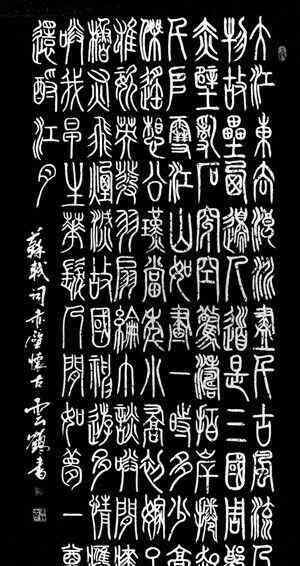 大江東去浪淘盡千古風流
物故壘西邊人道是三國周郎
赤壁亂石穿空驚濤拍岸捲起
千堆雪江山如畫一時多少豪
傑遙想公瑾當年小喬初嫁了
雄姿英發羽扇綸巾談笑間檣
櫓灰飛煙滅故國神遊多情應
笑我早生華髮人間如夢一尊
還酹江月
蘇軾詞赤壁懷古 雲鶴書